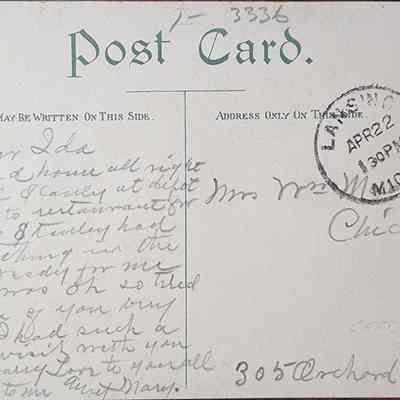 1- 3336
Post Card.
MAY BE WRITTEN ON THIS SIDE.
ADDRESS ONLY ON THIS SIDE.
LANSING
APR 22
1 30 PM
MIC
Ida
home all right
at depot
to restaurant for
Stanley had
in the
ready for me
was oh so tired
of you
I had such a
visit with you
Love to you all
to me Aunt Mary.
Mrs Wm M
Chic
305 Orchard